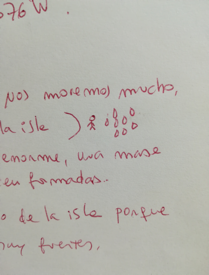 676 W.
nos moremos mucho,
la isle
enorme, una mase
en formadas.
o de la isle porque
muy fuertes.